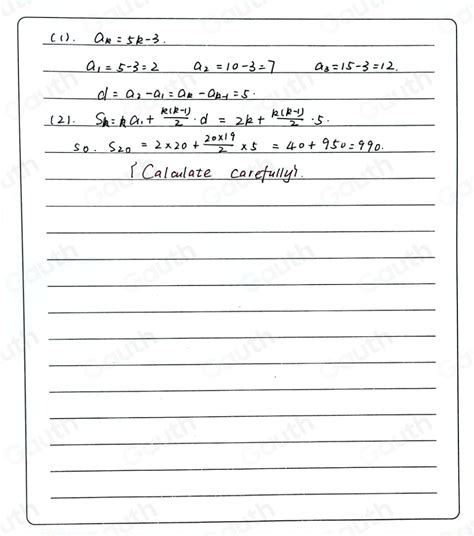 (1). aₖ = 5k-3.
a₁ = 5-3 = 2 a₂ = 10-3 = 7 a₃ = 15-3 = 12.
d = a₂ - a₁ = aₖ - aₖ₋₁ = 5.
(2). Sₖ = k a₁ + k(k-1)/2 · d = 2k + k(k-1)/2 · 5.
so. S₂₀ = 2×20 + 20×19/2 ×5 = 40 + 950 = 990.
{Calculate carefully}.
Gauth